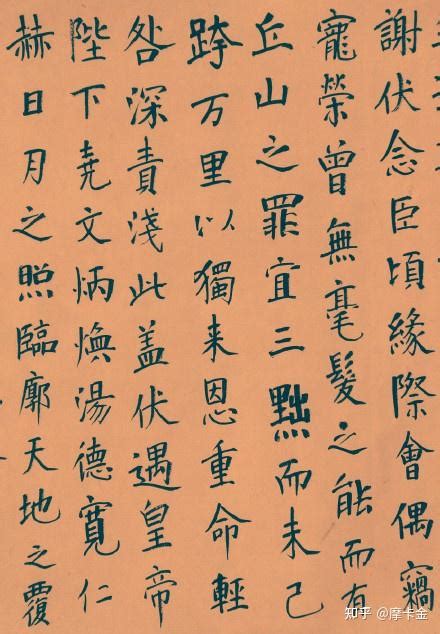 謝伏念臣頃緣際會偶竊
寵榮曾無毫髮之能而有
丘山之罪宜三黜而未已
跨万里以獨来恩重命輕
咎深責淺此盖伏遇皇帝
陛下堯文炳煥湯德寬仁
赫日月之照臨廓天地之覆
知乎 @摩卡金